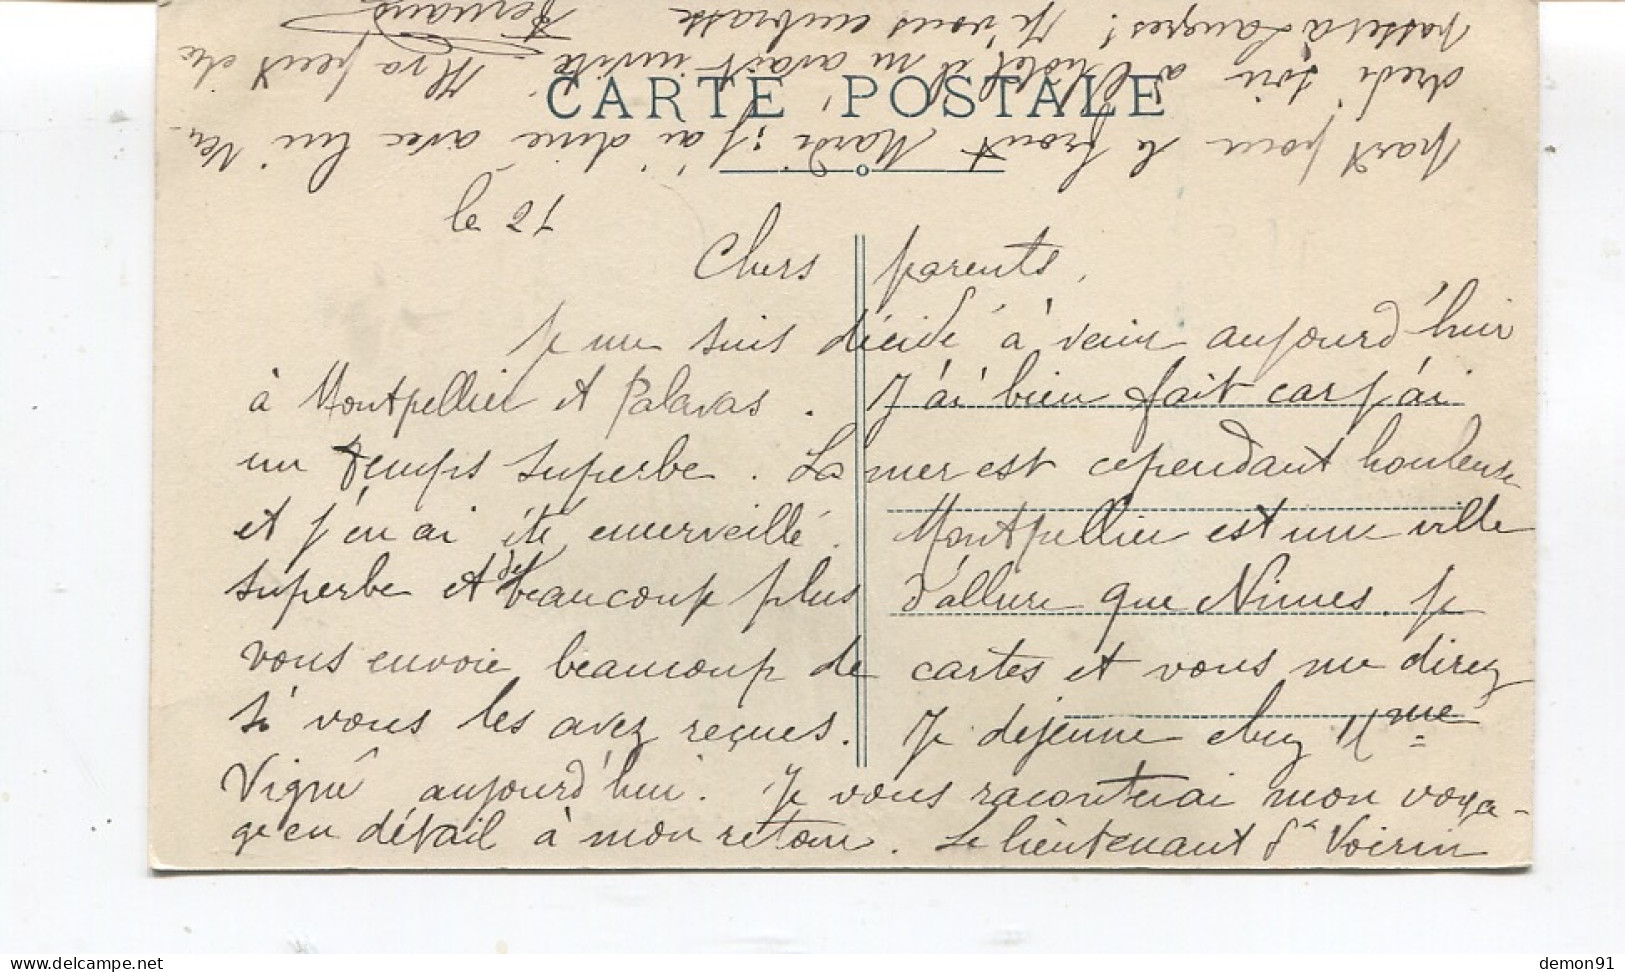 CARTE POSTALE
le 21
Chers parents,
Je me suis décidé à venir aujourd'hui
à Montpellier et Palavas. J'ai bien fait car j'ai
un temps superbe. La mer est cependant houleuse
et j'en ai été émerveillé. Montpellier est une ville
superbe et de beaucoup plus d'allure que Nîmes. Je
vous envoie beaucoup de cartes et vous me direz
si vous les avez reçues. Je déjeune chez Mme
aujourd'hui. Je vous raconterai mon voya-
ge en détail à mon retour. Le lieutenant Voirin
part pour le front Mardi; j'ai diné avec lui Ven-
dredi soir à l'hôtel, il m'avait invité. Il va peut être
passer à Langres! Je vous embrasse
Fernand
demon91